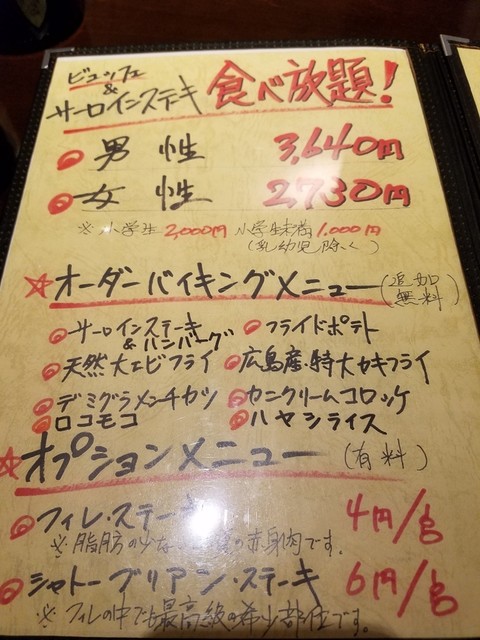 ビュッフェ
&
サーロインステーキ 食べ放題!
男性 3,640円
女性 2,730円
※小学生2,000円 小学生未満1,000円
(乳幼児除く)
☆オーダーバイキングメニュー(追加無料)
サーロインステーキ&ハンバーグ フライドポテト
天然大エビフライ 広島産・特大カキフライ
デミグラメンチカツ カニクリームコロッケ
ロコモコ ハヤシライス
☆オプションメニュー(有料)
フィレ・ステーキ 4円/g
※脂肪の少な の赤身肉です。
シャトーブリアン・ステーキ 6円/g
※フィレの中でも最高級の希少部位です。